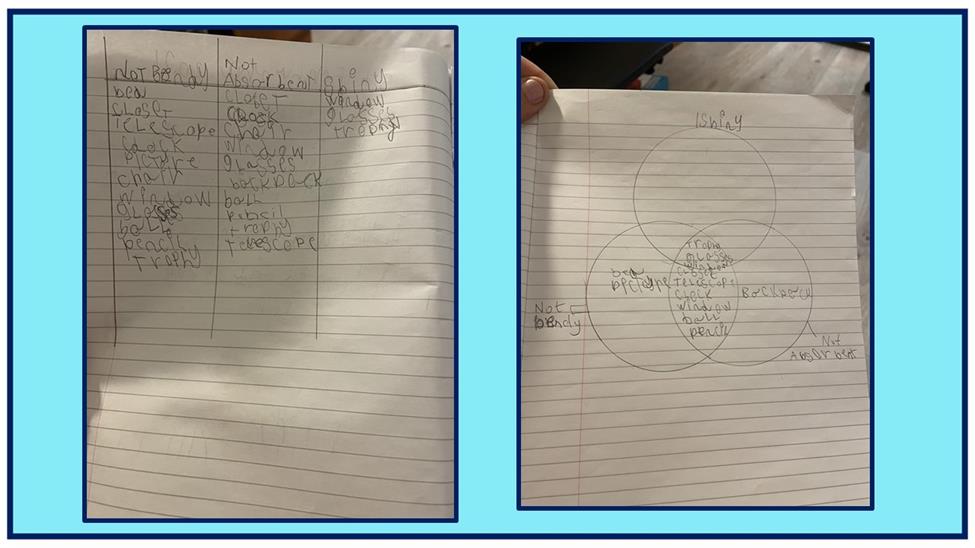 NOT Bendy
bed
CLOSET
TELESCOPE
CLOCK
PICTURE
chair
WINDOW
glasses
ball
pencil
trophy
Not
Absorbent
CLOSET
CLOCK
chair
WINDOW
glasses
backpack
ball
pencil
trophy
TeLescope
Shiny
window
glasses
trophy
Shiny
trophy
glasses
closet
TeLescope
clock
window
ball
pencil
bed
picture
Backpack
Not
bendy
Not
Absorbent